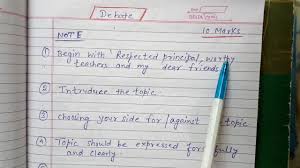 Debate
DATE
NOTE
10 Marks
① Begin with Respected principal, worthy
teachers and my dear friends
② Intruduce the topic
③ chosing your side for/against topic
④ Topic should be expressed forcefully
and clearly.